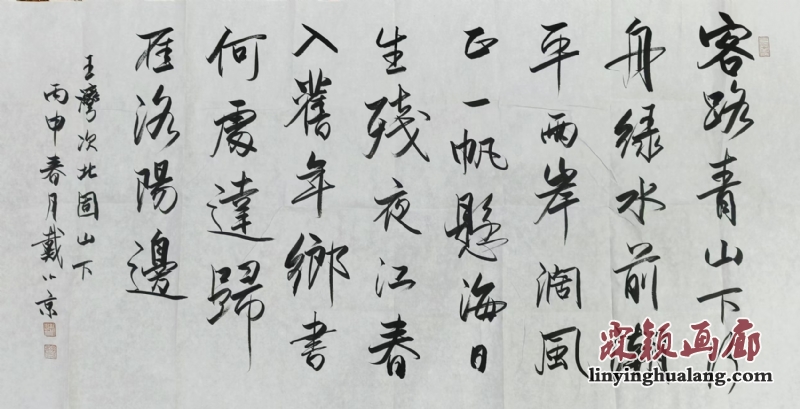 客路青山下行
舟绿水前潮
平两岸阔风
正一帆懸海日
生残夜江春
入舊年鄉書
何處達歸
雁洛陽邊
王灣次北固山下
丙申春月戴小京
霖颖画廊
linyinghualang.com